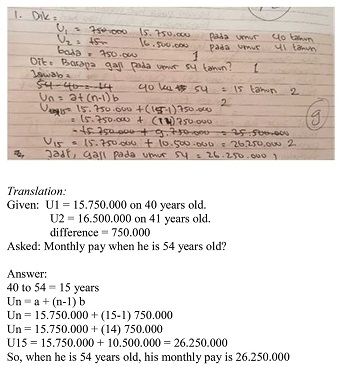 1. Dik =
U₁ = 15.750.000 pada umur 40 tahun
U₂ = 16.500.000 pada umur 41 tahun
beda = 750.000 1
Dit = Berapa gaji pada umur 54 tahun? 1
Jawab =
54-40 = 14 40 ke 54 = 15 tahun 2
Un = a+(n-1)b
= 15.750.000 + (15-1)750.000 2
= 15.750.000 + (14)750.000
= 15.750.000 + 9.750.000 = 25.500.000
U₁₅ = 15.750.000 + 10.500.000 = 26.250.000 2
Jadi, gaji pada umur 54 = 26.250.000 1
9
Translation:
Given: U1 = 15.750.000 on 40 years old.
U2 = 16.500.000 on 41 years old.
difference = 750.000
Asked: Monthly pay when he is 54 years old?
Answer:
40 to 54 = 15 years
Un = a + (n-1) b
Un = 15.750.000 + (15-1) 750.000
Un = 15.750.000 + (14) 750.000
U15 = 15.750.000 + 10.500.000 = 26.250.000
So, when he is 54 years old, his monthly pay is 26.250.000